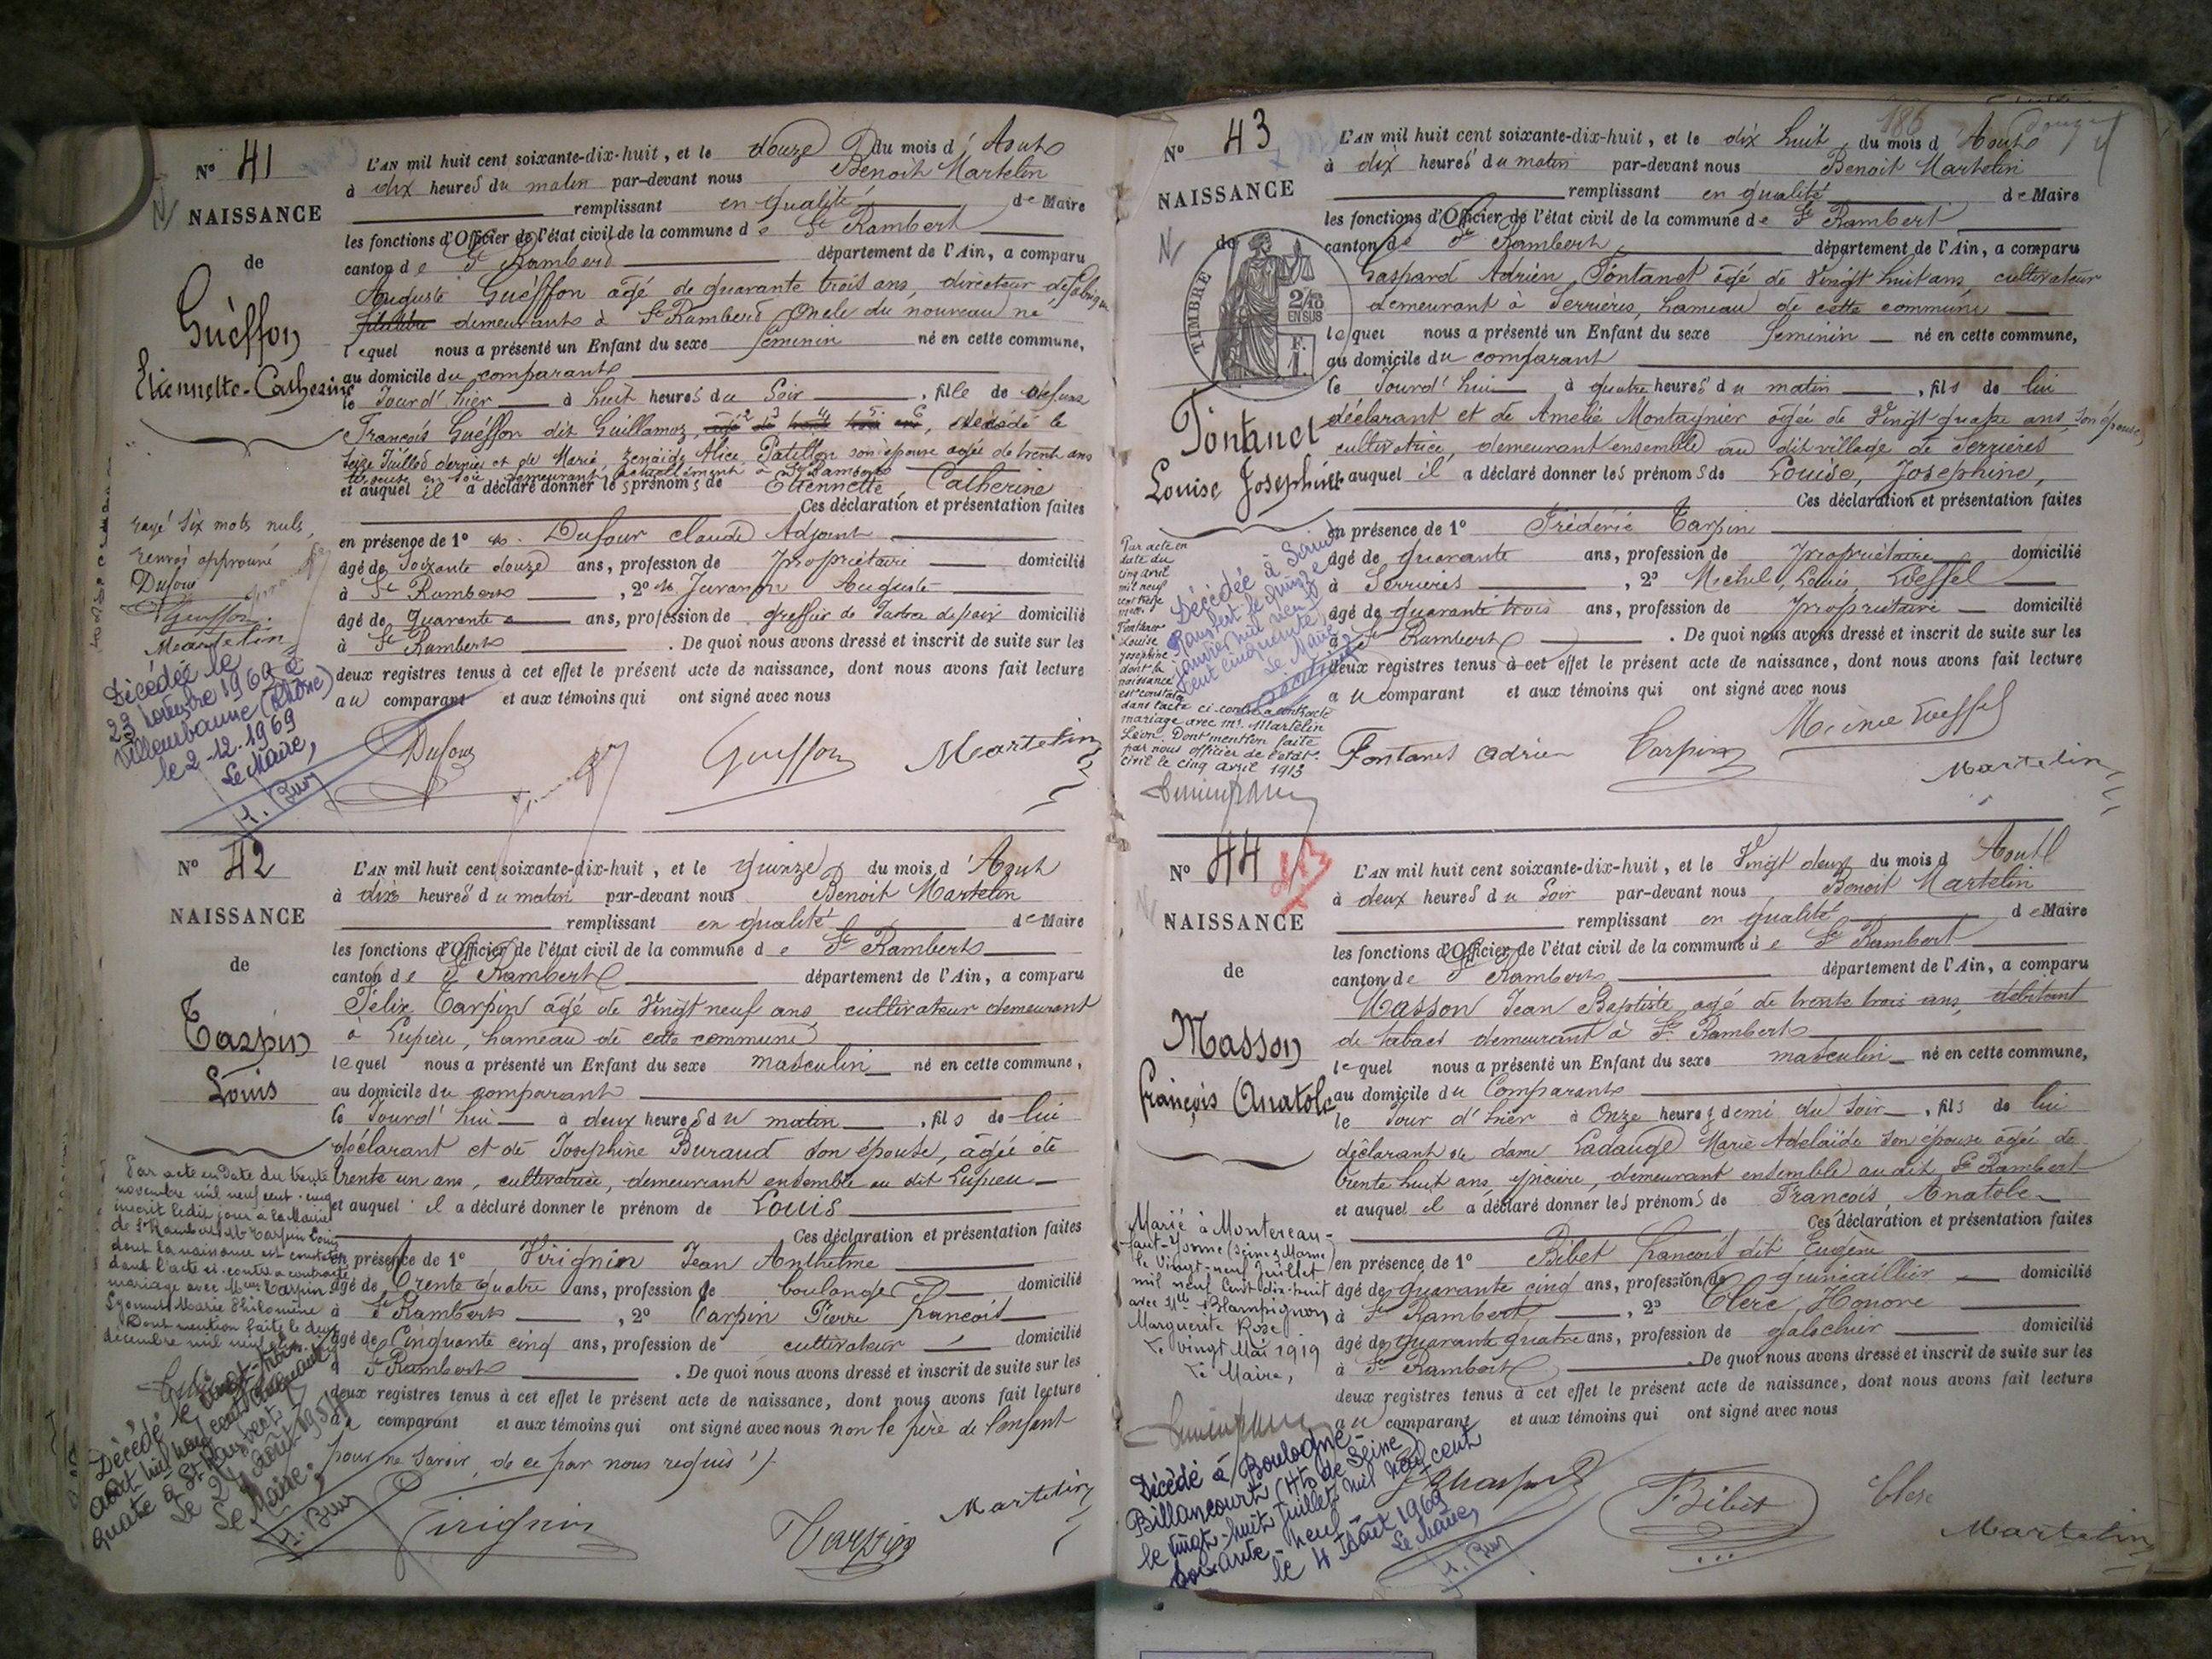 N° 41
NAISSANCE
de
Guèffon
Etiennette-Catherine
L'AN mil huit cent soixante-dix-huit, et le douze du mois d'Août
à dix heures du matin par-devant nous Benoit Martelin
remplissant en qualité de Maire
les fonctions d'Officier de l'état civil de la commune de St Rambert
canton de St Rambert département de l'Ain, a comparu
Auguste Guèffon âgé de quarante trois ans, directeur de fabrique
demeurant à St Rambert oncle du nouveau né
lequel nous a présenté un Enfant du sexe féminin né en cette commune,
au domicile du comparant
le Jourd'hier à huit heures du Soir, fille de defunt
François Guèffon dit Guillamoz, décédé le
Seize Juillet dernier et de Marie Zénaïde Alice Patillon son épouse agée de trente ans
demeurant actuellement à St Rambert
et auquel il a déclaré donner les prénoms de Etiennette Catherine
Ces déclaration et présentation faites
en présence de 1° Dufour Claude Adjoint
âgé de Soixante douze ans, profession de propriétaire domicilié
à St Rambert, 2° Juranon Auguste
âgé de quarante ans, profession de greffier de Justice de paix domicilié
à St Rambert. De quoi nous avons dressé et inscrit de suite sur les
deux registres tenus à cet effet le présent acte de naissance, dont nous avons fait lecture
au comparant et aux témoins qui ont signé avec nous
rayé Six mots nuls,
renvoi approuvé
Dufour
Gueffon
Martelin
Décédée le
23 novembre 1969 à
Villeurbanne (Rhône)
le 2-12-1969
Le Maire,
Dufour Gueffon Martelin
N° 42
NAISSANCE
de
Tarpin
Louis
L'AN mil huit cent soixante-dix-huit, et le quinze du mois d'Aout
à dix heures du matin par-devant nous Benoit Martelin
remplissant en qualité de Maire
les fonctions d'Officier de l'état civil de la commune de St Rambert
canton de St Rambert département de l'Ain, a comparu
Félix Tarpin âgé de Vingt neuf ans cultivateur demeurant
à Lupieu, hameau de cette commune
lequel nous a présenté un Enfant du sexe masculin né en cette commune,
au domicile du comparant
le Jourd'hui à deux heures du matin, fils de lui
déclarant et de Josephine Buraud son épouse, âgée de
trente un ans, cultivatrice, demeurant ensemble au dit Lupieu
et auquel il a déclaré donner le prénom de Louis
Ces déclaration et présentation faites
en présence de 1° Virignin Jean Anthelme
âgé de trente quatre ans, profession de boulanger domicilié
à St Rambert, 2° Tarpin Pierre françois
âgé de Cinquante cinq ans, profession de cultivateur domicilié
à St Rambert. De quoi nous avons dressé et inscrit de suite sur les
deux registres tenus à cet effet le présent acte de naissance, dont nous avons fait lecture
au comparant et aux témoins qui ont signé avec nous non le père de l'enfant
pour ne savoir, de ce par nous requis
Par acte en date du trente
novembre mil neuf cent cinq
inscrit ledit jour à la Mairie
de St Rambert Mr Tarpin Louis
dont la naissance est constatée
dans l'acte ci-contre a contracté
mariage avec Melle Tarpin
Marie Philomène
Dont mention faite le deux
décembre mil neuf cent
Décédé le vingt
août mil neuf cent cinquante
quatre à St Rambert
le 24 Août 1954
Le Maire.
Virignin Tarpin Martelin
N° 43
NAISSANCE
de
TIMBRE
2/10
EN SUS
Fontanet
Louise Josephine
L'AN mil huit cent soixante-dix-huit, et le dix huit du mois d'Août
à dix heures du matin par-devant nous Benoit Martelin
remplissant en qualité de Maire
les fonctions d'Officier de l'état civil de la commune de St Rambert
canton de St Rambert département de l'Ain, a comparu
Gaspard Adrien Fontanet âgé de Vingt huit ans, cultivateur
demeurant à Serrières, hameau de cette commune
lequel nous a présenté un Enfant du sexe féminin né en cette commune,
au domicile du comparant
le Jourd'hui à quatre heures du matin, fils de lui
déclarant et de Amélie Montagnier agée de Vingt quatre ans, son épouse,
cultivatrice, demeurant ensemble au dit village de Serrières
et auquel il a déclaré donner les prénoms de Louise, Josephine,
Ces déclaration et présentation faites
en présence de 1° Fréderic Tarpin
âgé de quarante ans, profession de propriétaire domicilié
à Serrières, 2° Michel Louis Goeffel
âgé de quarante trois ans, profession de propriétaire domicilié
à St Rambert. De quoi nous avons dressé et inscrit de suite sur les
deux registres tenus à cet effet le présent acte de naissance, dont nous avons fait lecture
au comparant et aux témoins qui ont signé avec nous
Par acte en
date du
cinq avril
mil neuf
cent treize
Louise
Josephine
dont la
naissance
est constatée
dans l'acte ci-contre a contracté
mariage avec Mr. Martelin
Léon. Dont mention faite
par nous officier de l'état-
civil le cinq avril 1913
Décédée à Saint
Rambert le quinze
janvier mil neuf
cent cinquante
Le Maire
Fontanet Adrien Tarpin Martelin
N° 44
NAISSANCE
de
Masson
françois Anatole
L'AN mil huit cent soixante-dix-huit, et le Vingt deux du mois d Août
à deux heures du Soir par-devant nous Benoit Martelin
remplissant en qualité de Maire
les fonctions d'Officier de l'état civil de la commune de St Rambert
canton de St Rambert département de l'Ain, a comparu
Masson Jean Baptiste, agé de trente trois ans, debitant
de tabact demeurant à St Rambert
lequel nous a présenté un Enfant du sexe masculin né en cette commune,
au domicile du Comparant
le Jour d'hier à Onze heures demi du Soir, fils de lui
déclarant et de dame Ladauge Marie Adelaïde son épouse agée de
trente huit ans, épicière, demeurant ensemble au dit St Rambert
et auquel il a déclaré donner les prénoms de François Anatole
Ces déclaration et présentation faites
en présence de 1° Bibet francois dit Eugène
âgé de quarante cinq ans, profession de quincaillier domicilié
à St Rambert, 2° Clerc Honore
âgé de quarante quatre ans, profession de domicilié
à St Rambert. De quoi nous avons dressé et inscrit de suite sur les
deux registres tenus à cet effet le présent acte de naissance, dont nous avons fait lecture
au comparant et aux témoins qui ont signé avec nous
Marié à Montereau-
faut-Yonne (Seine & Marne)
le Vingt-neuf Juillet
mil neuf Cent dix-huit
avec Melle Blampignon
Marguerite Rose
Le vingt Mai 1919
Le Maire,
Décédé à Boulogne-
Billancourt (Hts de Seine)
le vingt-huit juillet mil neuf cent
soixante-neuf
le 4 Août 1969
Le Maire,
Bibet Clerc
Martelin